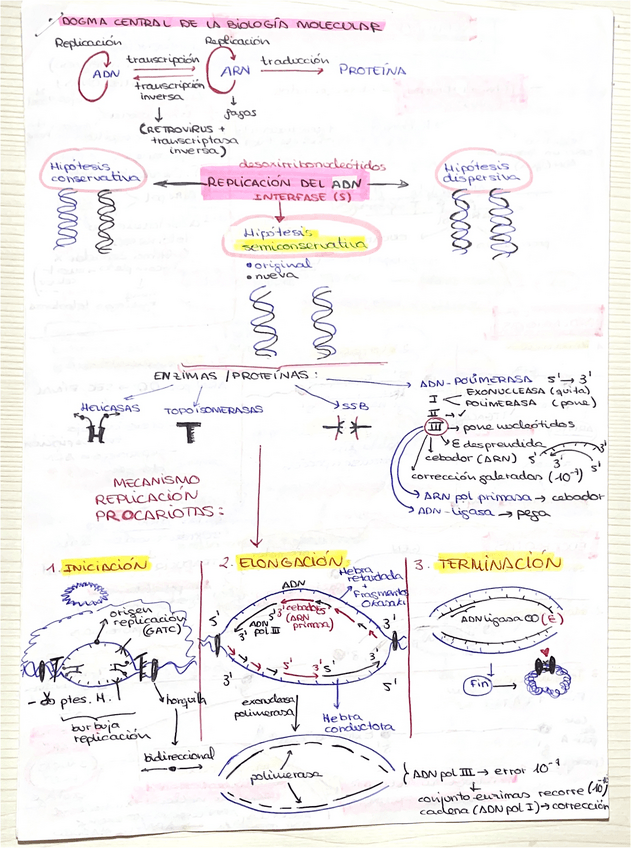 DOGMA CENTRAL DE LA BIOLOGÍA MOLECULAR
Replicación
Replicación
ADN
transcripción
ARN
traducción
PROTEÍNA
transcripción
inversa
fagos
(RETROVIRUS +
transcriptasa
inversa)
Hipótesis
conservativa
desoxirribonucleótidos
REPLICACIÓN DEL ADN
INTERFASE (S)
Hipótesis
dispersiva
Hipótesis
semiconservativa
• original
• nueva
ENZIMAS / PROTEÍNAS:
HELICASAS
TOPOISOMERASAS
SSB
ADN-POLIMERASA 5' → 3'
I
EXONUCLEASA (quita)
POLIMERASA (pone)
II → ✓
III → pone nucleótidos
desprendida
cebador (ARN)
5'
3'
3'
5'
corrección galeradas (10⁻⁷)
ARN pol primasa → cebador
ADN-ligasa → pega
MECANISMO
REPLICACIÓN
PROCARIOTAS:
1. INICIACIÓN
origen
replicación
(GATC)
ptes. H.
horquilla
burbuja
replicación
bidireccional
2. ELONGACIÓN
ADN
Hebra
retardada
+
Fragmentos
Okazaki
5'
3'
5'
3'
cebadores
(ARN
primasa)
ADN
pol III
3'
3'
5'
3'
5'
exonucleasa
polimerasa
Hebra
conductora
polimerasa
3. TERMINACIÓN
ADN ligasa (E)
Fin
ADN pol III → error 10⁻⁷
conjunto enzimas recorre
cadena (ADN pol I) → corrección